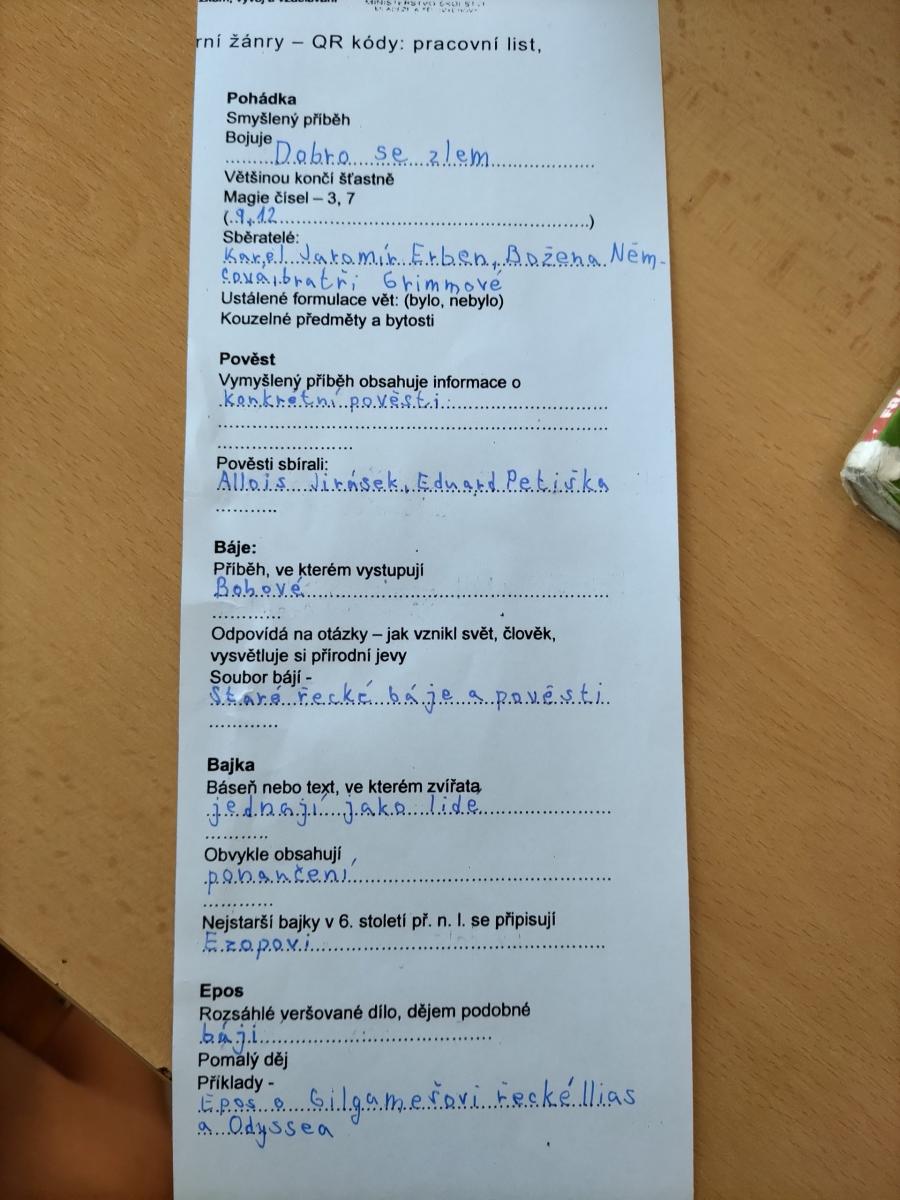 rní žánry – QR kódy: pracovní list,
Pohádka
Smyšlený příběh
Bojuje
Dobro se zlem
Většinou končí šťastně
Magie čísel – 3, 7
(9,12)
Sběratelé:
Karel Jaromír Erben, Božena Něm-
cova, bratři Grimmové
Ustálené formulace vět: (bylo, nebylo)
Kouzelné předměty a bytosti
Pověst
Vymyšlený příběh obsahuje informace o
konkrétní pověsti
Pověsti sbírali:
Allois Jirásek, Eduard Petiška
Báje:
Příběh, ve kterém vystupují
Bohové
Odpovídá na otázky – jak vznikl svět, člověk,
vysvětluje si přírodní jevy
Soubor bájí -
Staré řecké báje a pověsti
Bajka
Báseň nebo text, ve kterém zvířata
jednají jako lide
Obvykle obsahují
ponančení
Nejstarší bajky v 6. století př. n. l. se připisují
Ezopovi
Epos
Rozsáhlé veršované dílo, dějem podobné
báji
Pomalý děj
Příklady -
Epos o Gilgamešovi řecké Ilias
a Odyssea